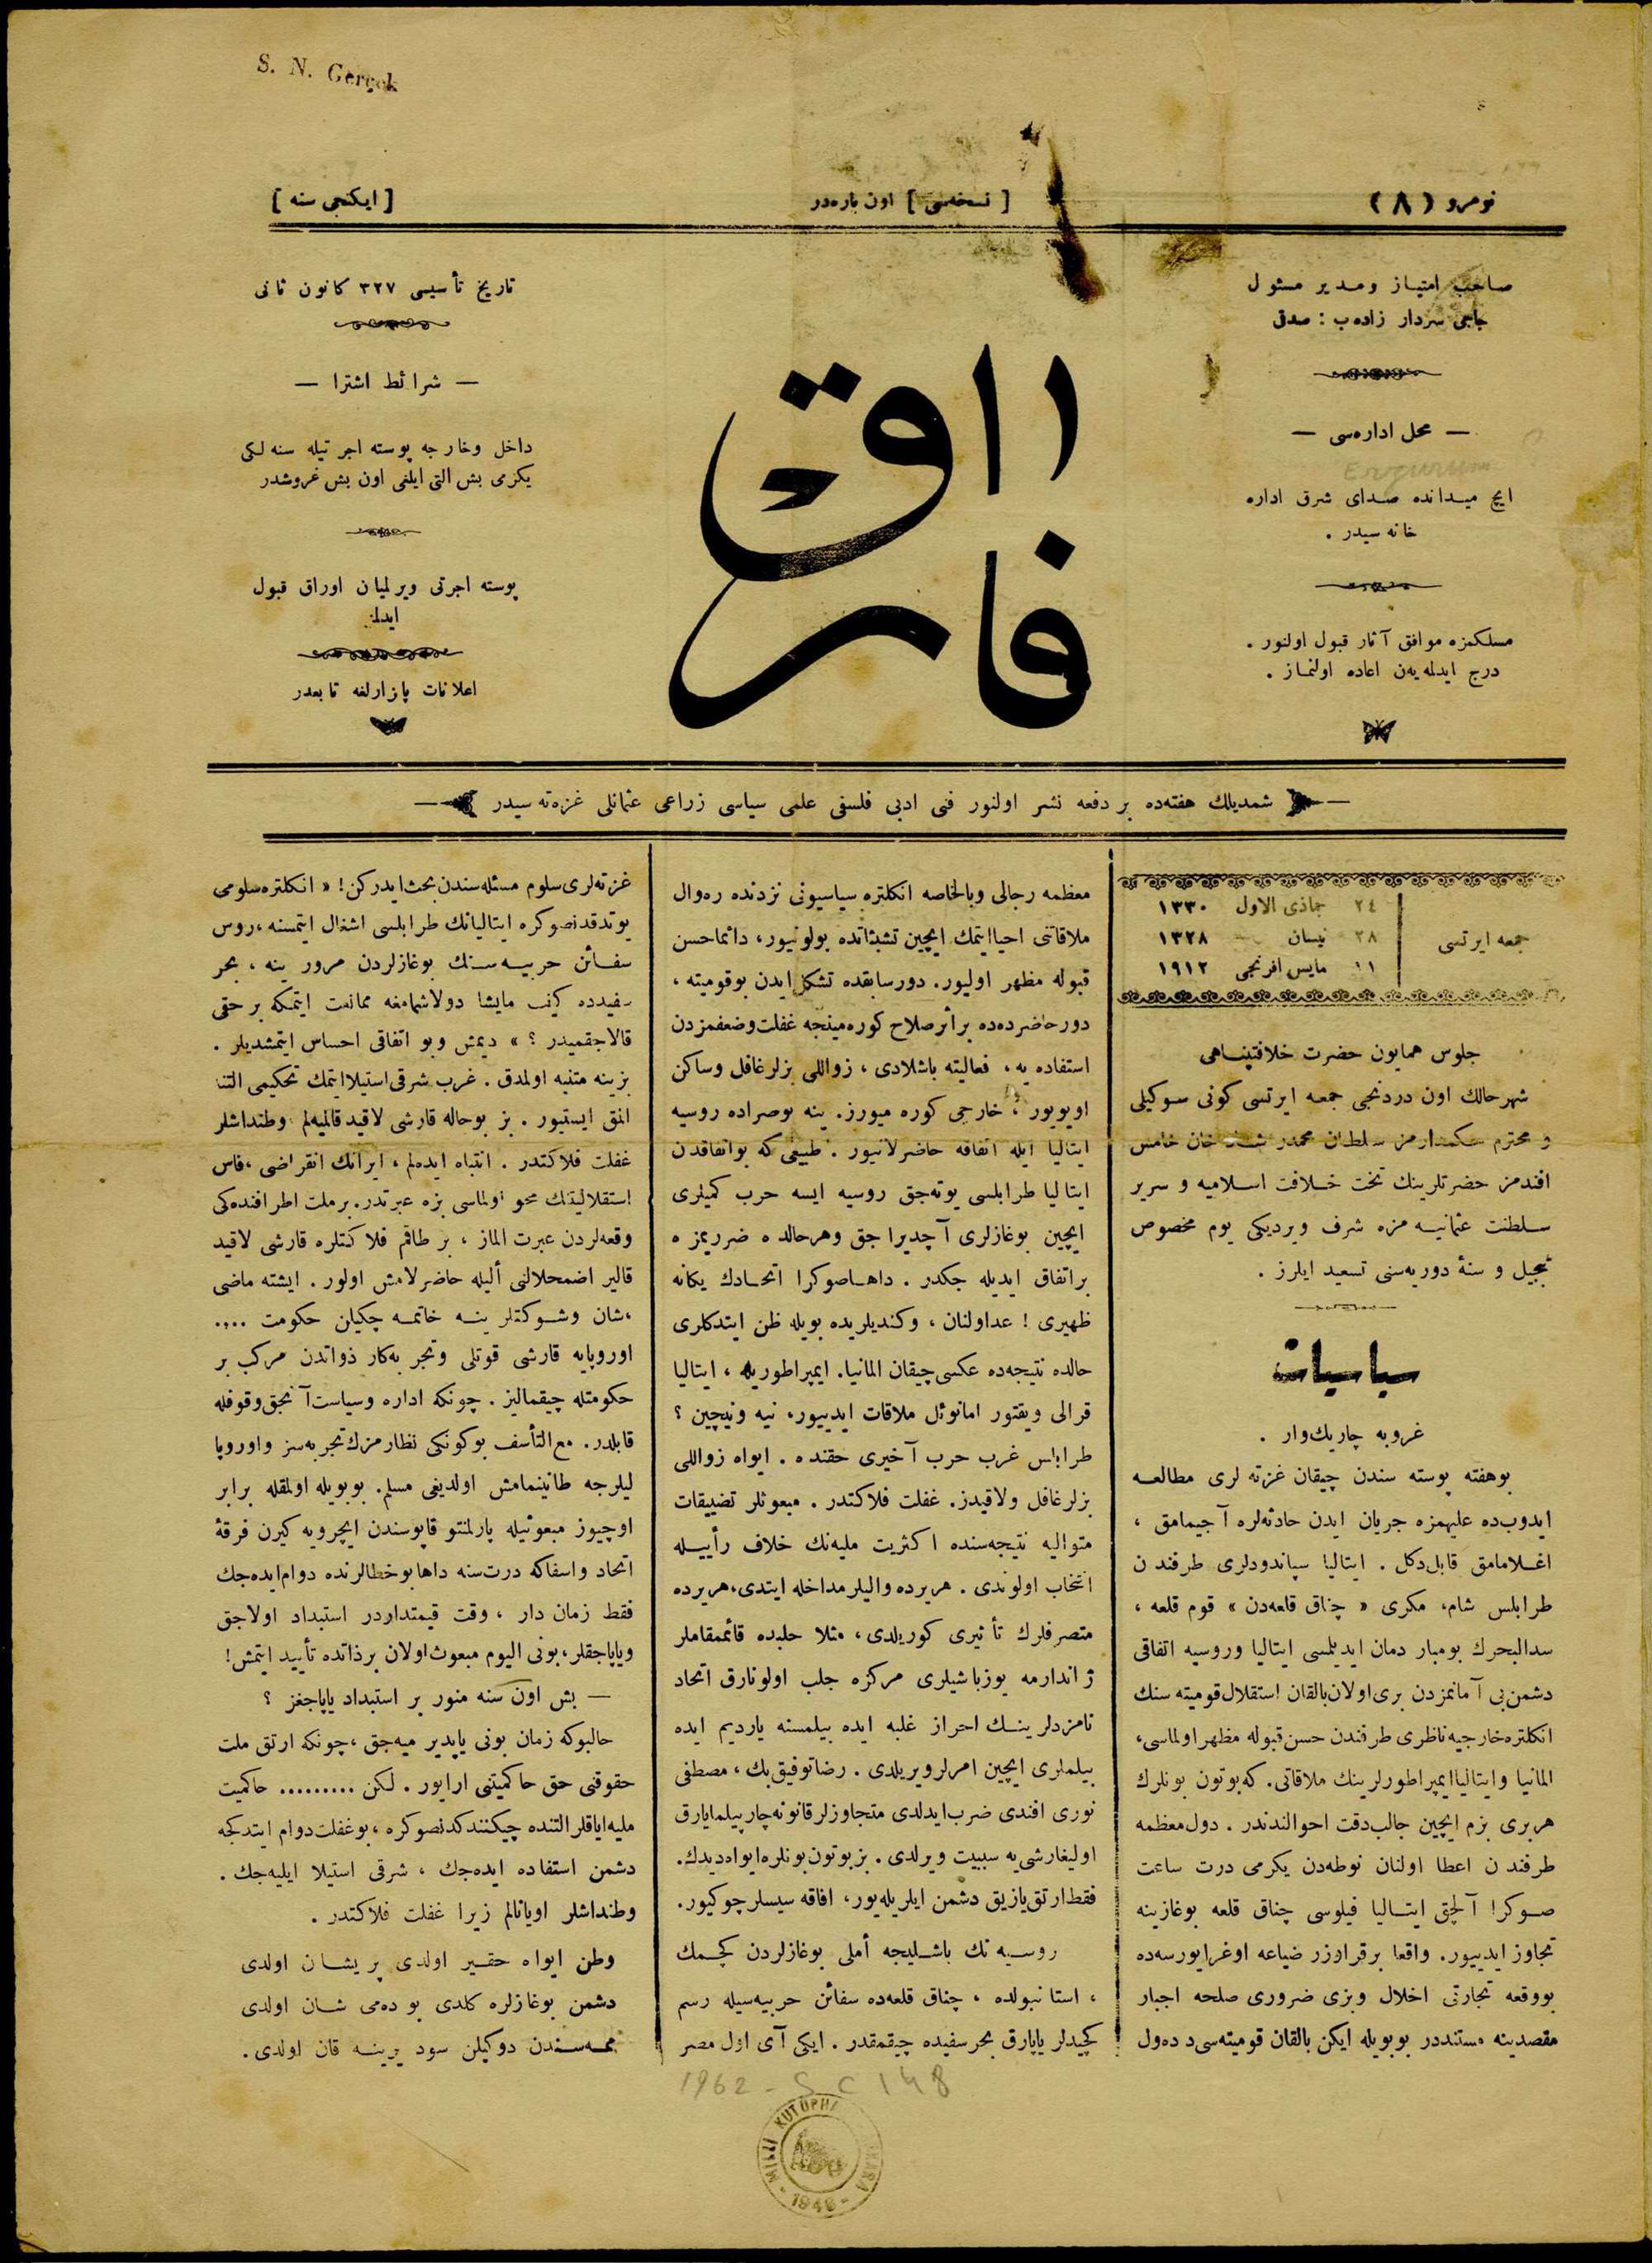 S. N. Gerçek
نومرو (٨)
[ نسخه‌سی ] اون پاره‌در
[ ایکنجی سنه ]
صاحب امتیاز ومدیر مسئول
حاجی سردار زاده ب : صدقی
— محل اداره‌سی —
Erzurum
ایچ میدانده صدای شرق اداره
خانه سیدر .
مسلكمزه موافق آثار قبول اولنور .
درج ایدلمه‌یه‌ن اعاده اولنماز .
تاریخ تأسیسی ٣٢٧ كانون ثانی
— شرائط اشترا —
داخل وخارجه پوسته اجرتیله سنه لكی
یكرمی بش التی ایلغی اون بش غروشدر
پوسته اجرتی ویرلمیان اوراق قبول
ایدلمز
اعلانات پازارلغه تابعدر
شمدیلك هفته‌ده بر دفعه نشر اولنور فنی ادبی فلسفی علمی سیاسی زراعی عثمانلی غزه‌ته سیدر
جمعه ایرتسی
٢٤ جماذی الاول ١٣٣٠
٢٨ نیسان ١٣٢٨
١١ مایس افرنجی ١٩١٢
جلوس همایون حضرت خلافتپناهی
شهر حالك اون دردنجی جمعه ایرتسی كونی سوكیلی
و محترم حكمدارمز سلطان محمد رشاد خان خامس
افندمز حضرتلرینك تخت خلافت اسلامیه و سریر
سلطنت عثمانیه مزه شرف ویردیكی یوم مخصوص
تبجیل و سنهٔ دوریه‌سنی تسعید ایلرز .
سیاسیات
غروبه چاریك‌وار .
بوهفته پوسته سندن چیقان غزته لری مطالعه
ایدوب‌ده علیهمزه جریان ایدن حادثه‌لره آجیمامق ،
اغلامامق قابل‌دكل . ایتالیا سپاندودلری طرفندن
طرابلس شام، مكری « چناق قلعه‌دن » قوم قلعه ،
سدالبحرك بومبار دمان ایدیلمسی ایتالیا وروسیه اتفاقی
دشمن‌بی آمانمزدن بری‌اولان‌بالقان استقلال‌قومیته سنك
انكلتره‌خارجیه‌ناظری طرفندن حسن‌قبوله مظهر اولماسی،
المانیا وایتالیاایمپراطورلرینك ملاقاتی. كه‌بوتون بونلرك
هربری بزم ایچین جالب‌دقت احوالندندر . دول‌معظمه
طرفندن اعطا اولنان نوطه‌دن یكرمی درت ساعت
صوكرا آلچق ایتالیا فیلوسی چناق قلعه بوغازینه
تجاوز ایدییور. واقعا برقراوزر ضیاعه اوغرایورسه‌ده
بووقعه تجارتی اخلال وبزی ضروری صلحه اجبار
مقصدینه مستنددر بوبویله ایكن بالقان قومیته‌سی‌د ده‌ول
معظمه رجالی وبالخاصه انكلتره سیاسیونی نزدنده ره‌وال
ملاقاتنی احیاایتمك ایچین تشبثاتده بولونیور، دائماحسن
قبوله مظهر اولیور. دورسابقده تشكل‌ایدن بوقومیته ،
دورحاضرده‌ده براثرصلاح كوره‌مینجه غفلت‌وضعفمزدن
استفاده‌یه، فعالیته باشلادی ، زواللی بزلرغافل وساكن
اویویور ، خارجی كوره میورز. ینه بوصراده روسیه
ایتالیا ایله اتفاقه حاضرلانیور . طبیعی كه بواتفاقدن
ایتالیا طرابلسی یوته‌جق روسیه ایسه حرب كمیلری
ایچین بوغازلری آچدیراجق وهرحالده ضرریمزه
براتفاق ایدیله جكدر . داهاصوكرا اتحادك یكانه
ظهیری ! عداولنان ، وكندیلریده بویله ظن ایتدكلری
حالده نتیجه‌ده عكسی‌چیقان المانیا. ایمپراطوریله ، ایتالیا
قرالی ویقتور امانوئل ملاقات ایدییور، نیه ونیچین ؟
طرابلس غرب حرب آخیری حقنده . ایواه زواللی
بزلرغافل ولاقیدز. غفلت فلاكتدر . مبعوثلر تضییقات
متوالیه نتیجه‌سنده اكثریت ملیه‌نك خلاف رأییله
انتخاب اولوندی . هریرده والیلرمداخله ایتدی،هریرده
متصرفلرك تأثیری كوریلدی، مثلا حلبده قائممقاملر
ژاندارمه یوزباشیلری مركزه جلب اولونارق اتحاد
نامزدلرینك احراز غلبه ایده بیلمسنه یاردیم ایده
بیلملری ایچین امرلرویریلدی . رضاتوفیق‌بك ، مصطفی
نوری افندی ضرب‌ایدلدی متجاوزلرقانونه‌چارپیلمایارق
اولیغارشی‌یه سببیت ویرلدی . بزبوتون‌بونلره‌ایواه‌دیدك.
فقط‌ارتق‌یازیق دشمن ایلریله‌یور، افاقه سیسلرچوكیور.
روسیه نك باشلیجه أملی بوغازلردن كچمك
، استانبولده ، چناق قلعه‌ده سفائن حربیه‌سیله رسم
كچیدلر یاپارق بحرسفیده چیقمقدر . ایكی آی اول مصر
غزته‌لری‌سلوم مسئله‌سندن‌بحث‌ایدركن! « انكلتره‌سلومی
یوتدقدنصوكره ایتالیانك طرابلسی اشغال ایتمسنه ،روس
سفائن حربیه‌سنك بوغازلردن مرورینه ، بحر
سفیدده كیف مایشا دولاشمامغه ممانعت ایتمكه برحقی
قالاجقمیدر ؟ » دیمش وبو اتفاقی احساس ایتمشدیلر .
بزینه متنبه اولمدق . غرب شرقی‌استیلاایتمك تحكیمی التنا
المق ایستیور . بز بوحاله قارشی لاقید قالمیه‌لم وطنداشلر
غفلت فلاكتدر . انتباه ایده‌لم ، ایرانك انقراضی ،فاس
استقلالیتنك محو اولماسی بزه عبرتدر. برملت اطرافنده‌كی
وقعه‌لردن عبرت الماز ، بر طاقم فلاكتلره قارشی لاقید
قالیر اضمحلالنی ألیله حاضرلامش اولور . ایشته ماضی
،شان وشوكتلرینه خاتمه چكیلن حكومت ....
اوروپایه قارشی قوتلی وتجربه‌كار ذواتدن مركب بر
حكومتله چیقمالیز . چونكه اداره وسیاست‌آنجق‌وقوفله
قابلدر. مع‌التأسف بوكونكی نظارمزك‌تجربه‌سز واوروپا
لیلرجه طانینمامش اولدیغی مسلم. بوبویله اولمقله برابر
اوچیوز مبعوثیله پارلمنتو قاپوسندن ایچرویه كیرن فرقهٔ
اتحاد واسفاكه درت‌سنه داهابوخطالرنده دوام‌ایده‌جك
فقط زمان دار ، وقت قیمتداردر استبداد اولاجق
ویاپاجقلر،بونی‌الیوم مبعوث‌اولان‌برذاتده تأیید ایتمش!
— بش اون سنه منور بر استبداد یاپاجغز ؟
حالبوكه زمان بونی یاپدیرمیه‌جق ،چونكه ارتق ملت
حقوقنی حق حاكمیتنی ارایور . لكن ......... حاكمیت
ملیه‌ایاقلرالتنده چیكنندكدنصوكره ،بوغفلت‌دوام ایتدكجه
دشمن استفاده ایده‌جك ، شرقی استیلا ایلیه‌جك .
وطنداشلر اویانالم زیرا غفلت فلاكتدر .
وطن ایواه حقیر اولدی پریشان اولدی
دشمن بوغازلره كلدی بو ده‌می شان اولدی
ممه‌سندن دوكیلن سود یرینه قان اولدی .
1962 - SC 148
MİLLİ KÜTÜPHANE ANKARA
- 1946 -